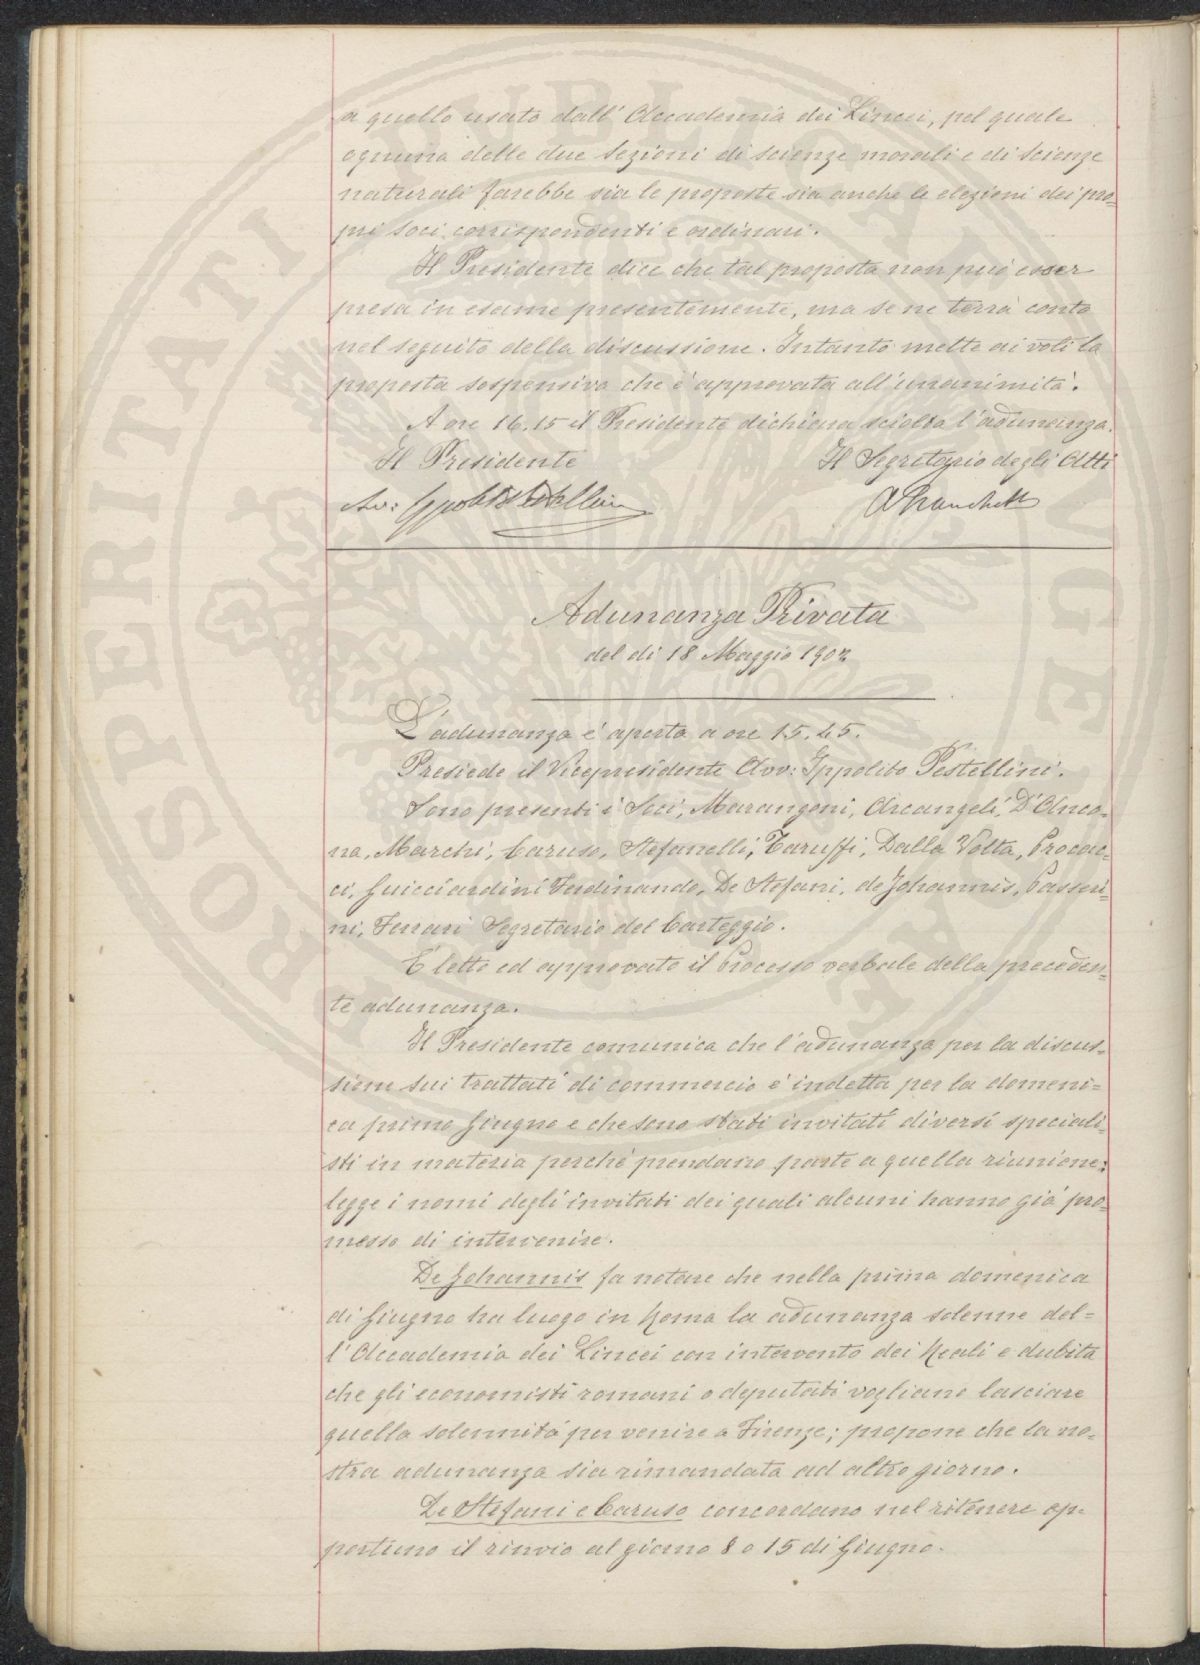 a quello usato dall'Accademia dei Lincei, pel quale
ognuna delle due Sezioni di scienze morali e di scienze
naturali farebbe sia le proposte sia anche le elezioni dei pro-
pri soci corrispondenti e ordinari.
Il Presidente dice che tal proposta non può esser
presa in esame presentemente, ma se ne terrà conto
nel seguito della discussione. Intanto mette ai voti la
proposta sospensiva che è approvata all'unanimità.
A ore 16.15 il Presidente dichiara sciolta l'adunanza.
Il Presidente
Il Segretario degli Atti
Avv: Ippolito Pestellini
Adunanza Privata
del dì 18 Maggio 1902
L'adunanza è aperta a ore 15.45.
Presiede il Vicepresidente Avv: Ippolito Pestellini.
Sono presenti i Soci, Marangoni, Arcangeli, D'Anco-
na, Marchi, Caruso, Stefanelli, Taruffi, Dalla Volta, Procac-
ci, Guicciardini Ferdinando, De Stefani, de Johannis, Passeri-
ni, Ferrari Segretario del Carteggio.
È letto ed approvato il Processo verbale della preceden-
te adunanza.
Il Presidente comunica che l'adunanza per la discus-
sione sui trattati di commercio è indetta per la domeni-
ca primo Giugno e che sono stati invitati diversi speciali-
sti in materia perchè prendano parte a quella riunione:
legge i nomi degli invitati dei quali alcuni hanno già pro-
messo di intervenire.
De Johannis fa notare che nella prima domenica
di Giugno ha luogo in Roma la adunanza solenne del-
l'Accademia dei Lincei con intervento dei Reali e dubita
che gli economisti romani o deputati vogliano lasciare
quella solennità per venire a Firenze; propone che la no-
stra adunanza sia rimandata ad altro giorno.
De Stefani e Caruso concordano nel ritenere op-
portuno il rinvio al giorno 8 o 15 di Giugno.
PROSPERITATI PUBLICAE AUGENDAE